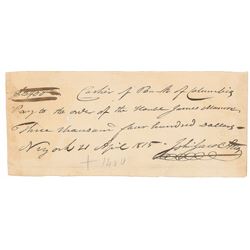 Cashier of Bank of Columbia
Pay to the order of the Honble James Monroe
Three thousand four hundred Dollars
NeYork 21 April 1815